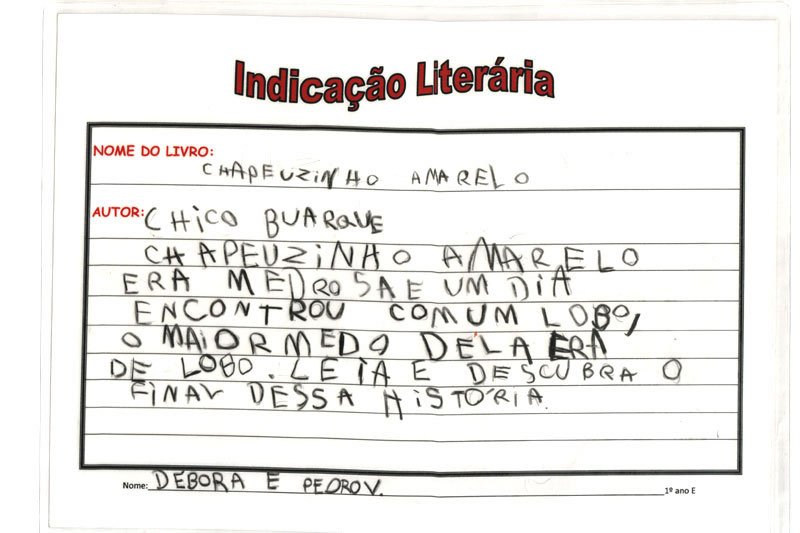 Indicação Literária
NOME DO LIVRO:
CHAPEUZINHO AMARELO
AUTOR: CHICO BUARQUE
CHAPEUZINHO AMARELO
ERA MEDROSA E UM DIA
ENCONTROU COM UM LOBO,
O MAIOR MEDO DELA ERA
DE LOBO. LEIA E DESCUBRA O
FINAL DESSA HISTÓRIA.
Nome: DEBORA E PEDRO V. 1º ano E